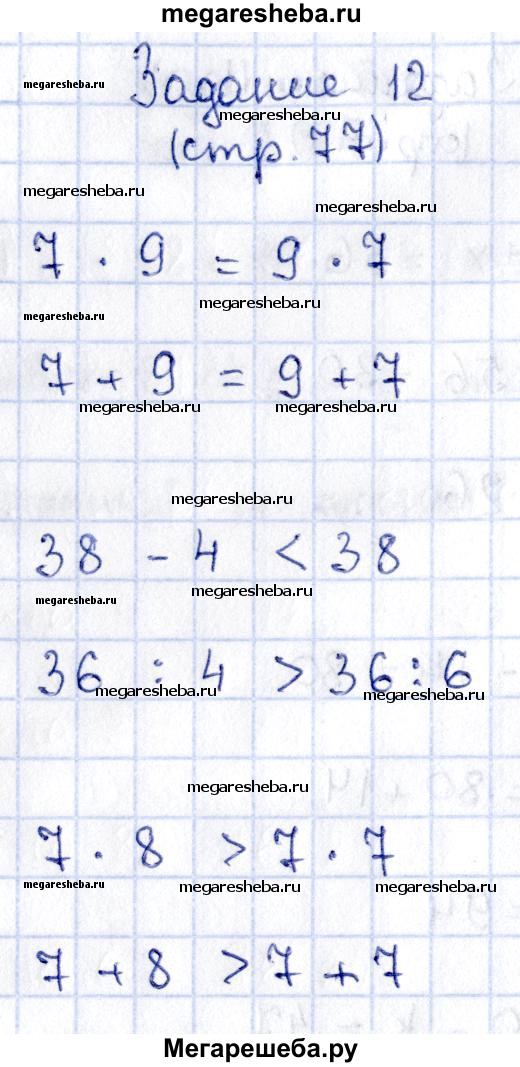 megaresheba.ru
Задание 12
megaresheba.ru
megaresheba.ru
(стр. 77)
megaresheba.ru
megaresheba.ru
7 · 9 = 9 · 7
megaresheba.ru
megaresheba.ru
7 + 9 = 9 + 7
megaresheba.ru megaresheba.ru
megaresheba.ru
38 - 4 < 38
megaresheba.ru
megaresheba.ru
36 : 4 > 36 : 6
megaresheba.ru megaresheba.ru
megaresheba.ru
7 · 8 > 7 · 7
megaresheba.ru megaresheba.ru megaresheba.ru
7 + 8 > 7 + 7
Мегарешеба.ру